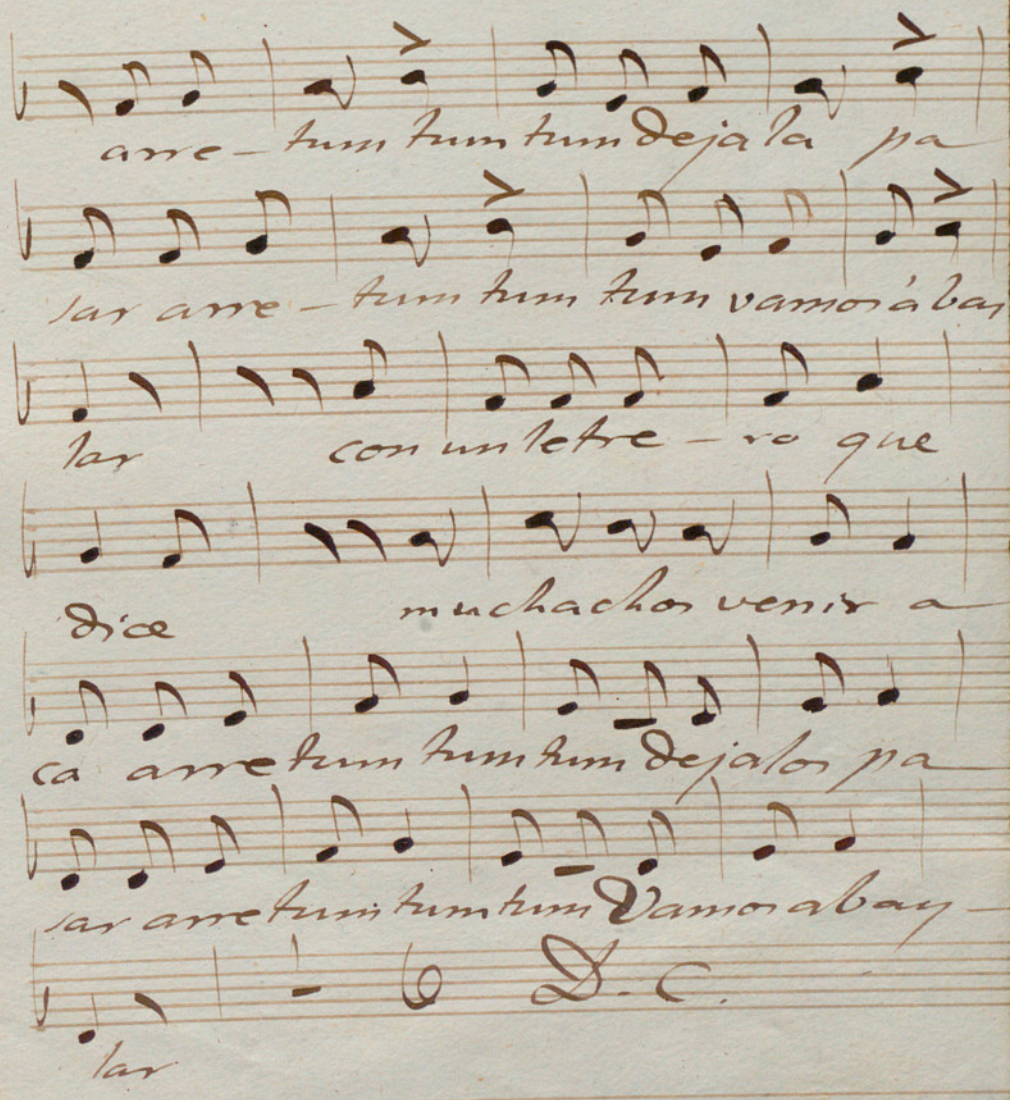 arre - tum tum tum deja la pa
sar arre - tum tum tum vamos á bai
lar con un letre - ro que
dice muchachos venir a
ca arre tum tum tum dejalos pa
sar arre tum tum tum Vamos a bay -
6 D. C.
lar